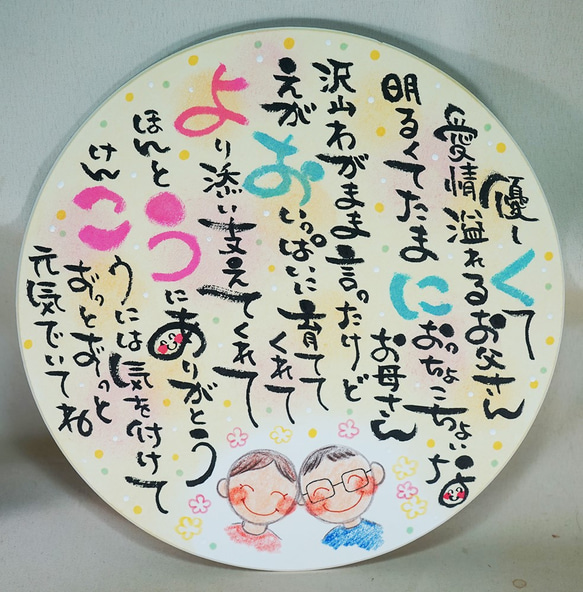 優しくて
愛情溢れるお父さん
明るくてたまに
おっちょこちょいな
お母さん
沢山わがまま言ったけど
えがおいっぱいに育てて
くれて
より添い支えてくれて
ほんとうにありがとう
けんこうには気を付けて
ずっとずっと
元気でいてね